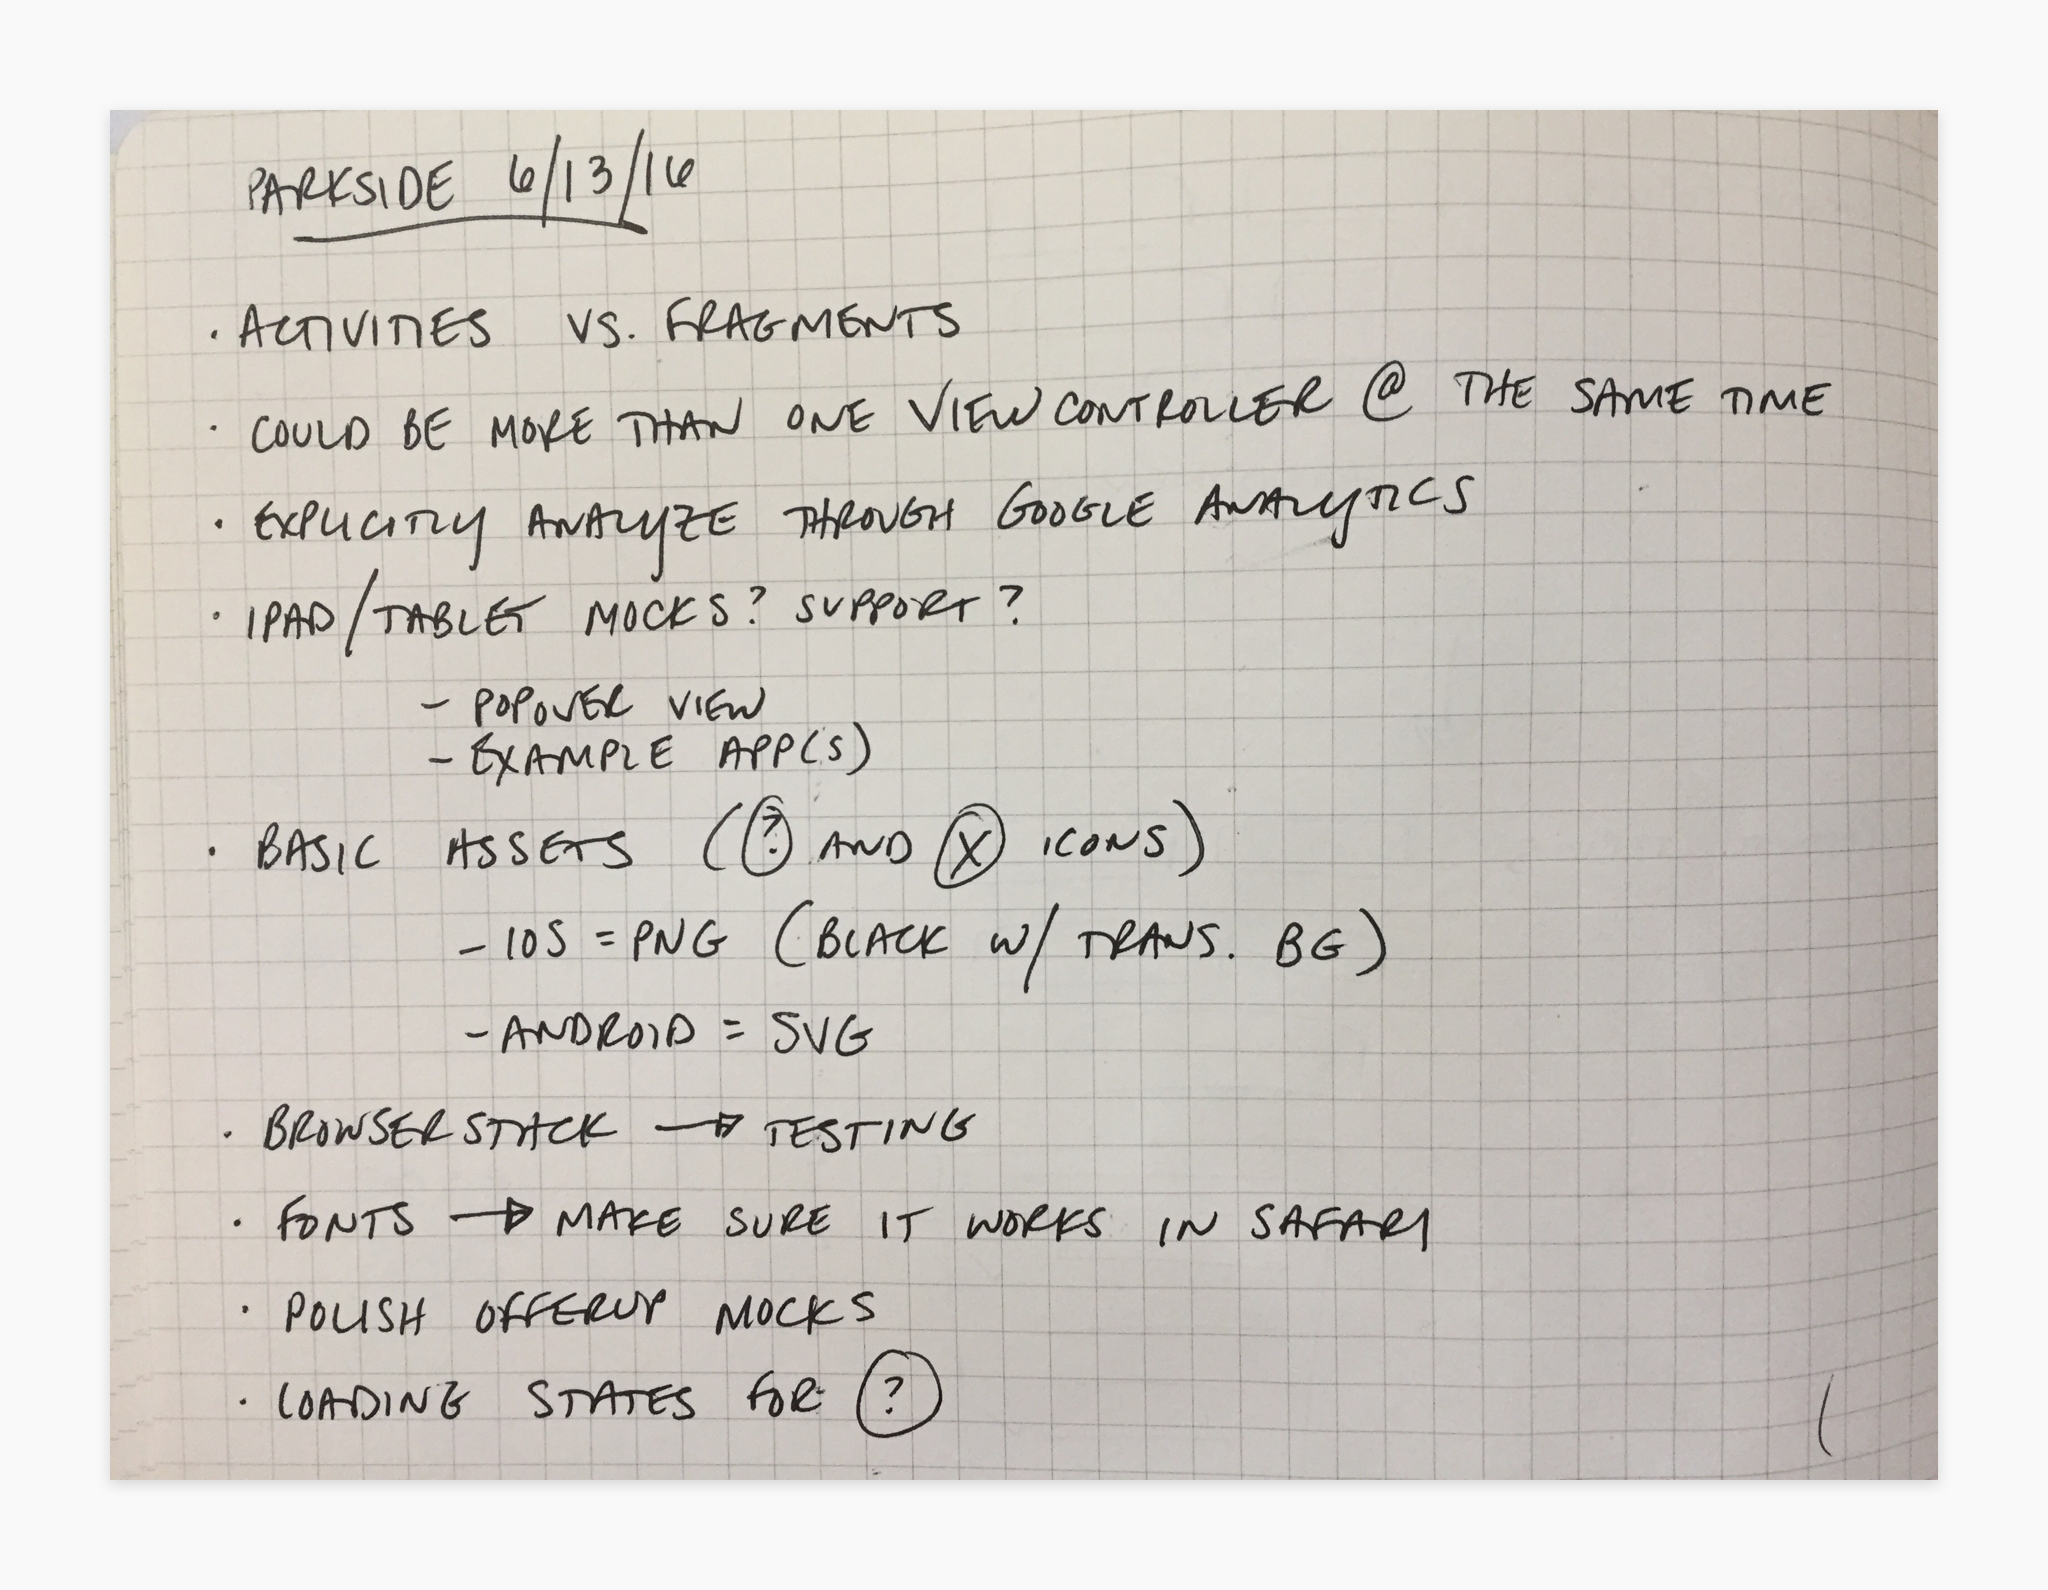 PARKSIDE 6/13/16
· ACTIVITIES VS. FRAGMENTS
· COULD BE MORE THAN ONE VIEW CONTROLLER @ THE SAME TIME
· EXPLICITLY ANALYZE THROUGH GOOGLE ANALYTICS
· IPAD/TABLET MOCKS? SUPPORT?
- POPOVER VIEW
- EXAMPLE APP(S)
· BASIC ASSETS (? AND X ICONS)
- IOS = PNG (BLACK W/ TRANS. BG)
- ANDROID = SVG
· BROWSERSTACK → TESTING
· FONTS → MAKE SURE IT WORKS IN SAFARI
· POLISH OFFERUP MOCKS
· LOADING STATES FOR ?
(